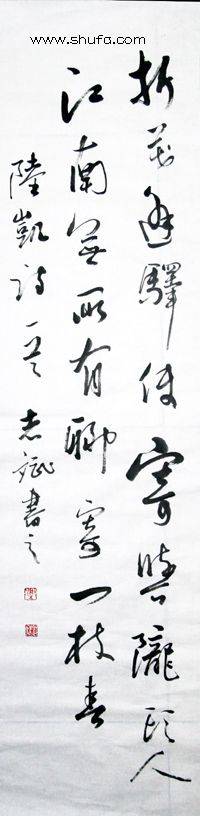 www.shufa.com
折花逢驛使寄與隴頭人
江南無所有聊寄一枝春
陸凱詩一首 志書之